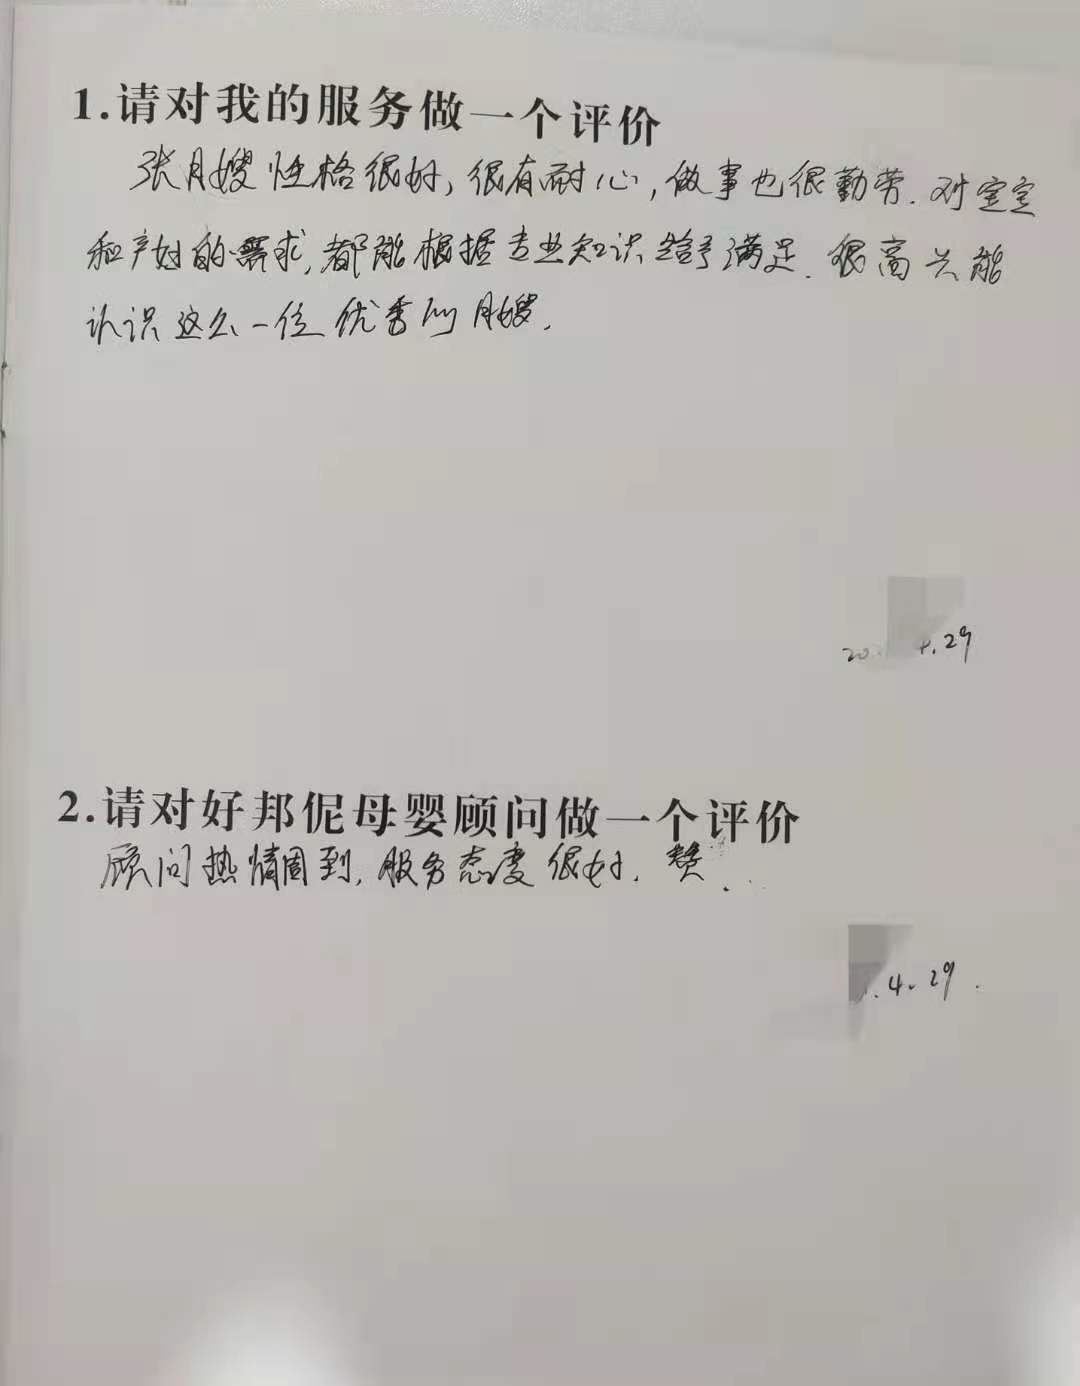 1.请对我的服务做一个评价
张月嫂性格很好,很有耐心,做事也很勤劳.对宝宝
和产妇的需求,都能根据专业知识给予满足.很高兴能
认识这么一位优秀的月嫂.
20 4.29
2.请对好邦伲母婴顾问做一个评价
顾问热情周到,服务态度很好.赞.
.4.29.